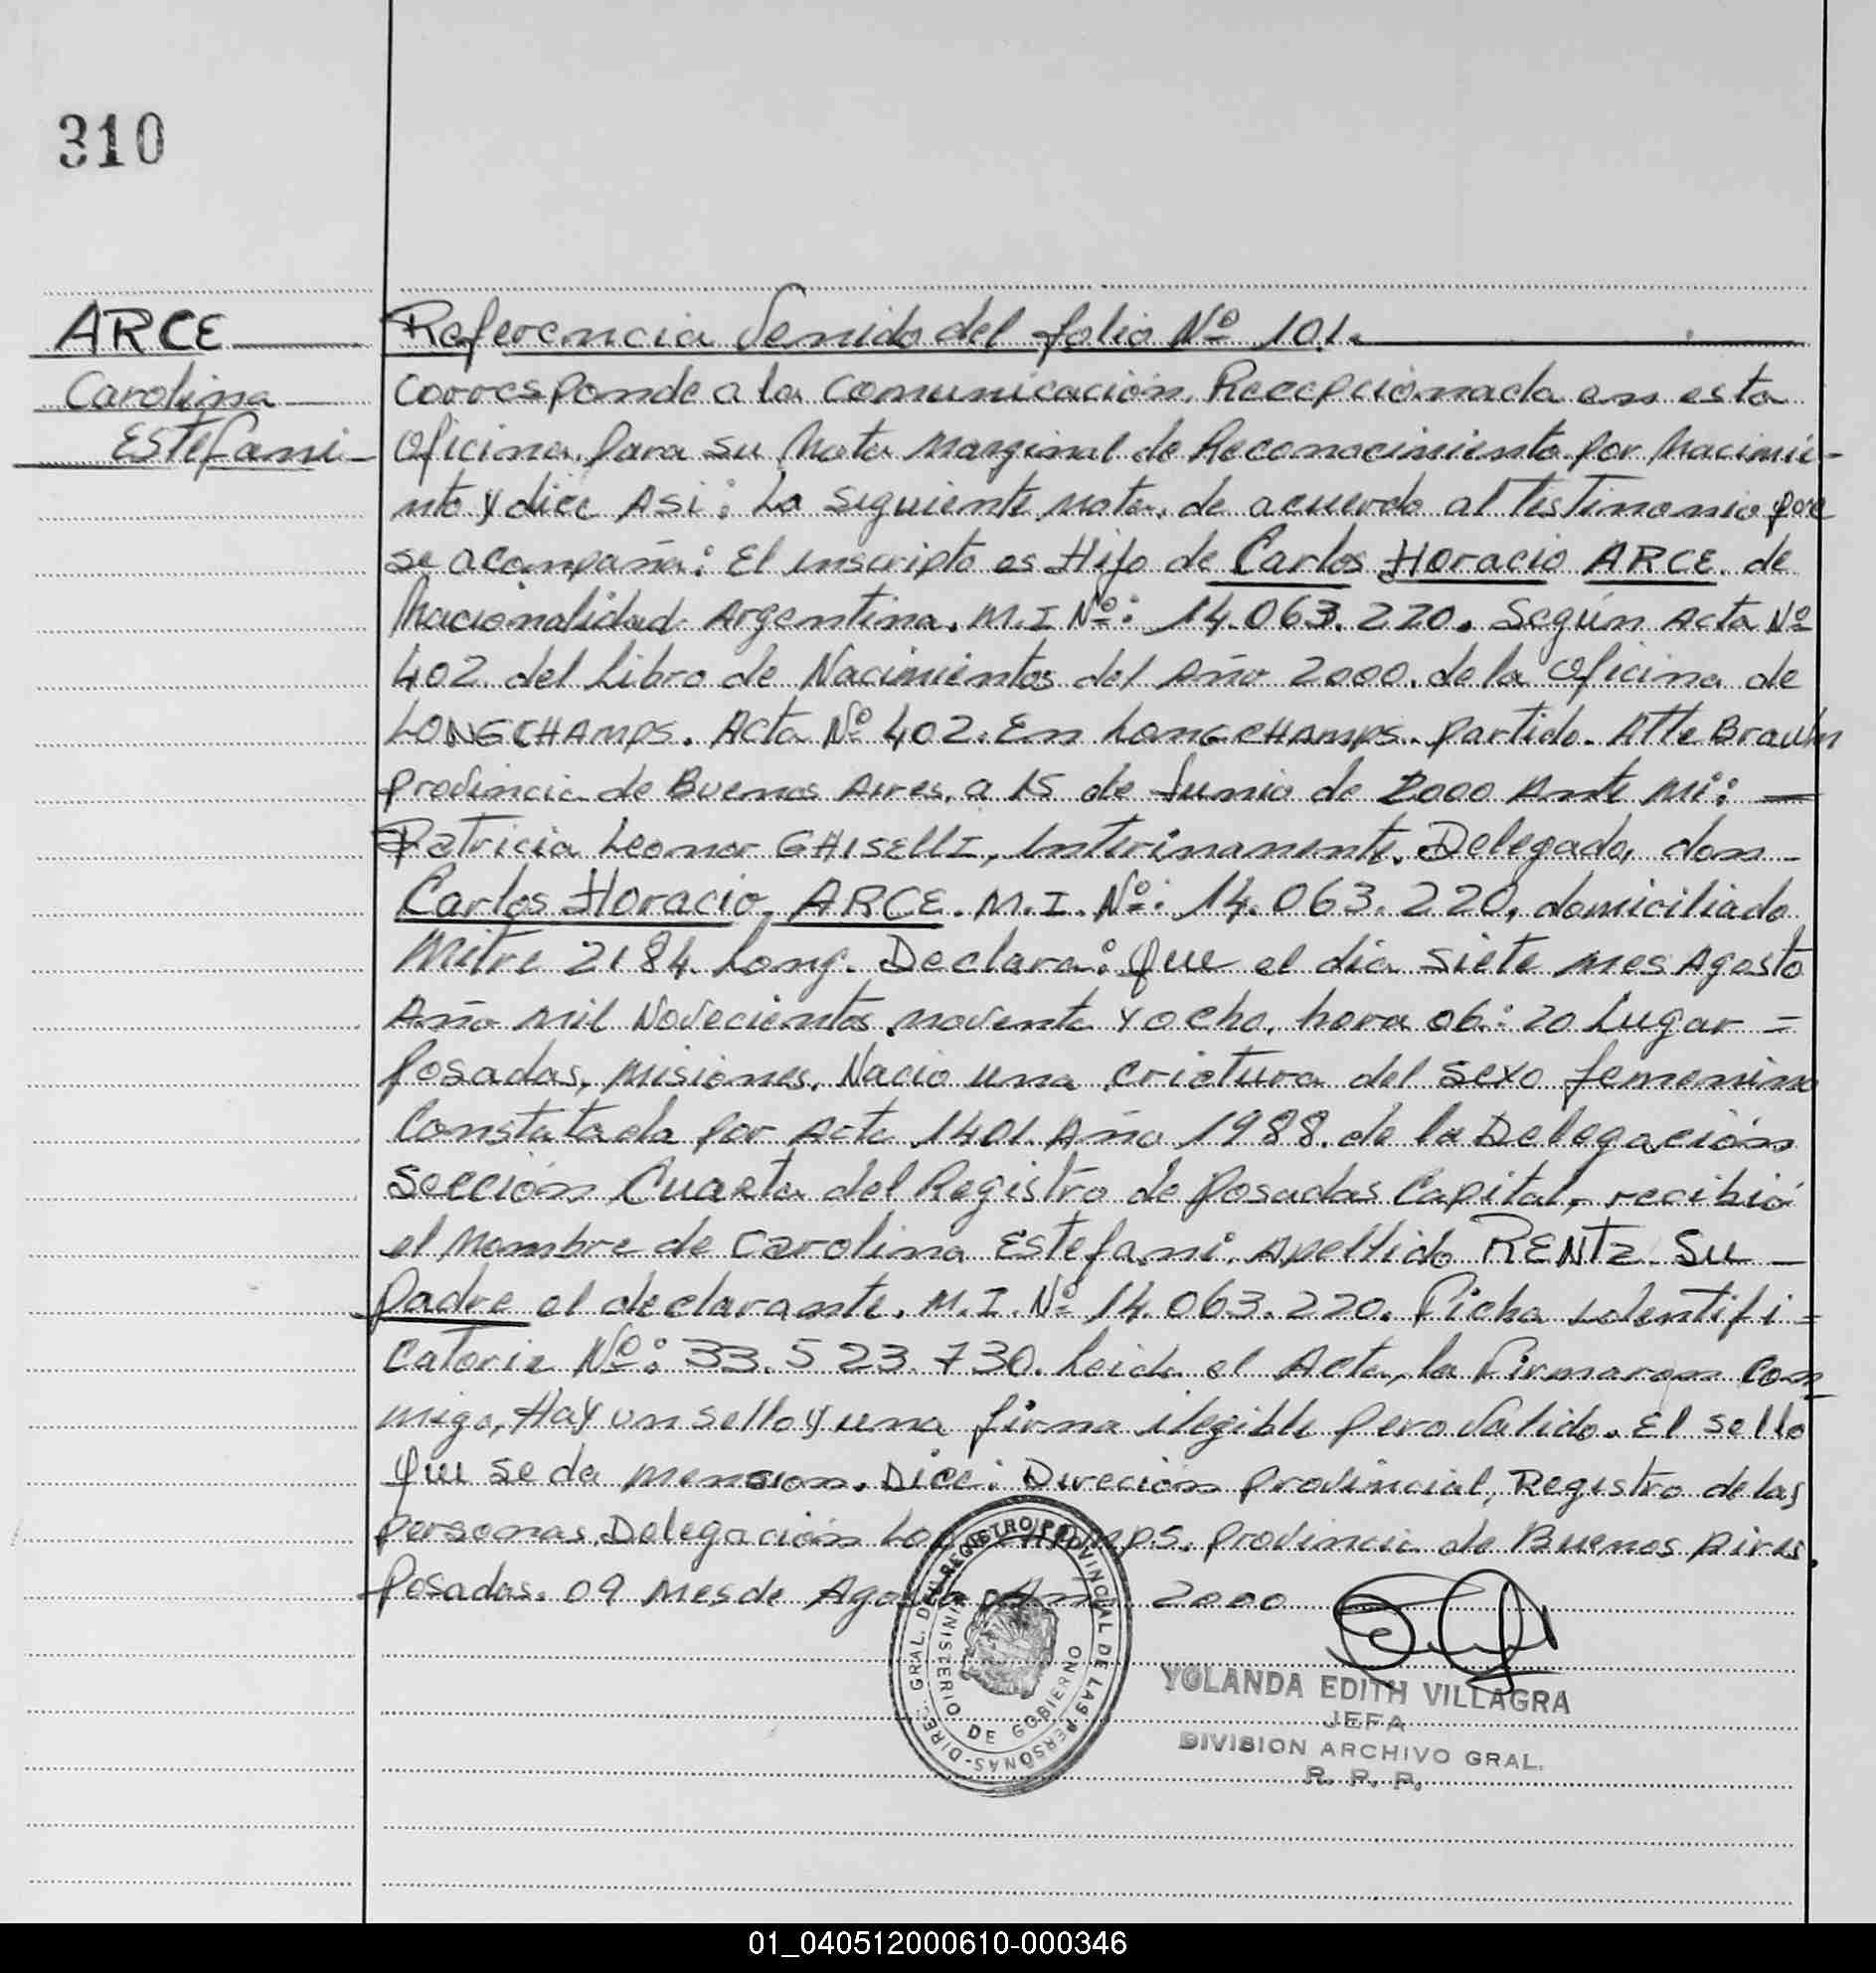 310
ARCE
Carolina
Estefani
Referencia Venido del folio Nº 101.
Corresponde a la Comunicación, Recepcionada en esta
Oficina, para su Nota Marginal de Reconocimiento por Nacimie-
nto y dice Asi: La siguiente Nota, de acuerdo al Testimonio que
se acompaña: El inscripto es Hijo de Carlos Horacio ARCE. de
Nacionalidad Argentina. M.I Nº: 14.063.220. Según Acta Nº
402 del Libro de Nacimientos del Año 2000. de la Oficina de
LONGCHAMPS. Acta Nº 402. En LONGCHAMPS. partido. Alte Brown
provincia de Buenos Aires, a 15 de Junio de 2000 Ante Mi:
Patricia Leonor GHISELLI, Interinamente, Delegado, don
Carlos Horacio, ARCE. M.I. Nº: 14.063.220, domiciliado
Mitre 2184. Long. Declara: que el dia siete mes Agosto
Año mil Novecientos noventa y ocho, hora 06:20 Lugar =
Posadas, Misiones. Nacio una criatura del sexo femenino
Constatada por Acta 1401. Año 1988. de la Delegación
Sección Cuarta del Registro de Posadas Capital, recibió
el Nombre de Carolina Estefani. Apellido RENTZ. Su
Padre el declarante. M.I. Nº 14.063.220. Ficha identifi=
catoria Nº: 33.523.730. Leida el Acta, la firmaron Con-
migo, Hay un sello y una firma ilegible pero Valido. El sello
que se da mension. Dice: Direción provincial, Registro de las
personas. Delegación Longchamps. provincia de Buenos Aires.
Posadas. 09 Mes de Agosto Año 2000
DIRE. GRAL. DEL REGISTRO PROVINCIAL DE LAS PERSONAS
MINISTERIO DE GOBIERNO
YOLANDA EDITH VILLAGRA
JEFA
DIVISION ARCHIVO GRAL.
R. P. P.
01_040512000610-000346